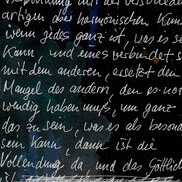 artigen oder harmonischen Kunst
wenn jedes ganz ist, was es se
kann, und eines verbindet s
mit dem anderen, ersetzt den
Mangel des andern, den es not
wendig haben muß, um ganz
das zu sein, was es als besond
sein kann, dann ist die
Vollendung da und das Göttlich
ist